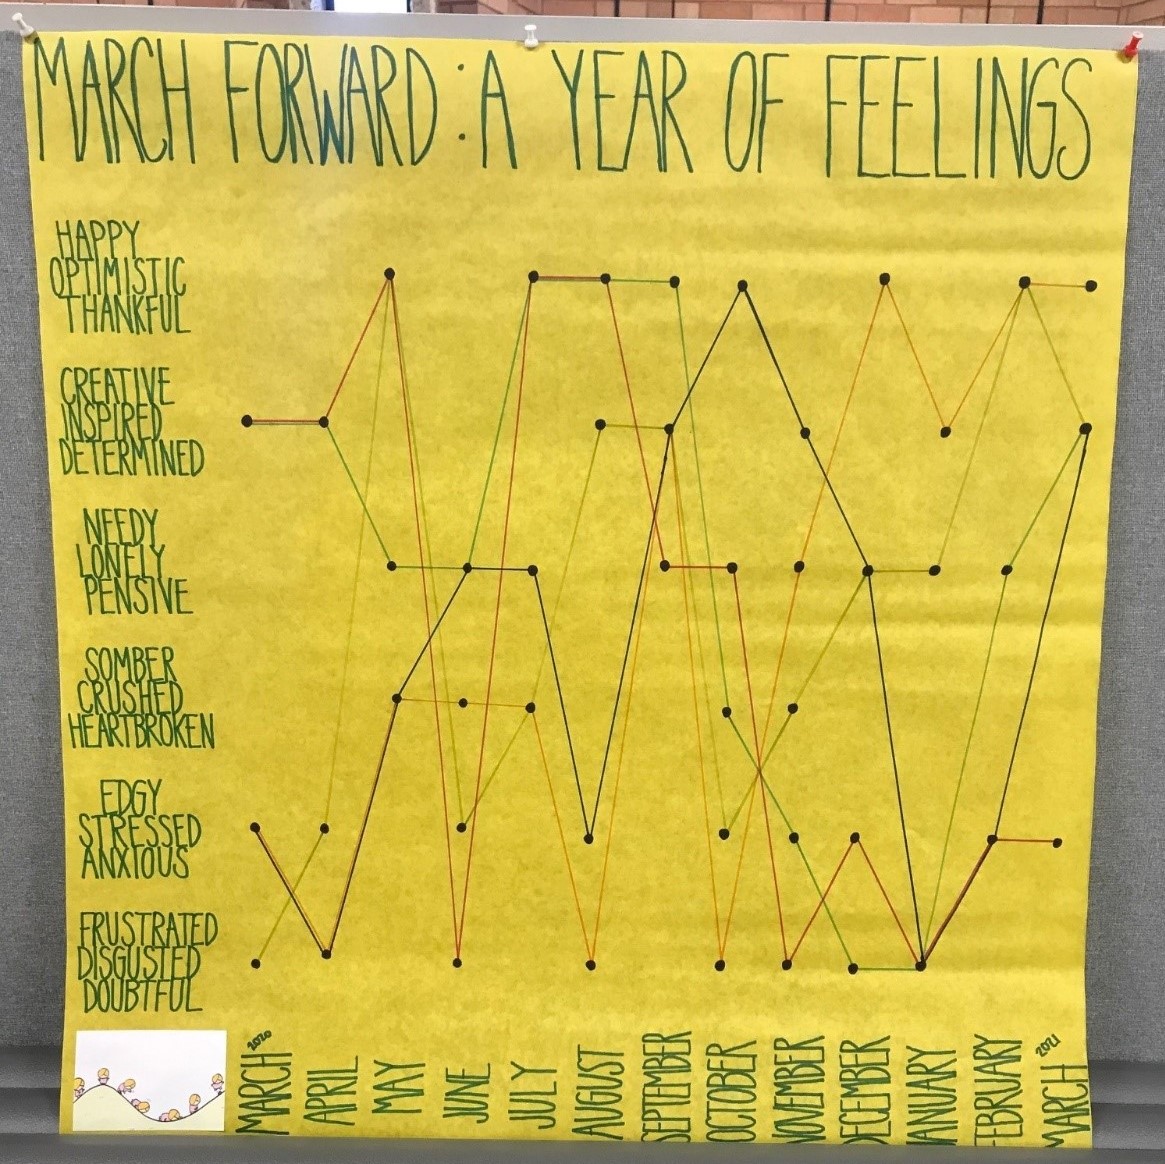 MARCH FORWARD: A YEAR OF FEELINGS
HAPPY
OPTIMISTIC
THANKFUL
CREATIVE
INSPIRED
DETERMINED
NEEDY
LONELY
PENSIVE
SOMBER
CRUSHED
HEARTBROKEN
EDGY
STRESSED
ANXIOUS
FRUSTRATED
DISGUSTED
DOUBTFUL
MARCH 2020
APRIL
MAY
JUNE
JULY
AUGUST
SEPTEMBER
OCTOBER
NOVEMBER
DECEMBER
JANUARY
FEBRUARY
MARCH 2021